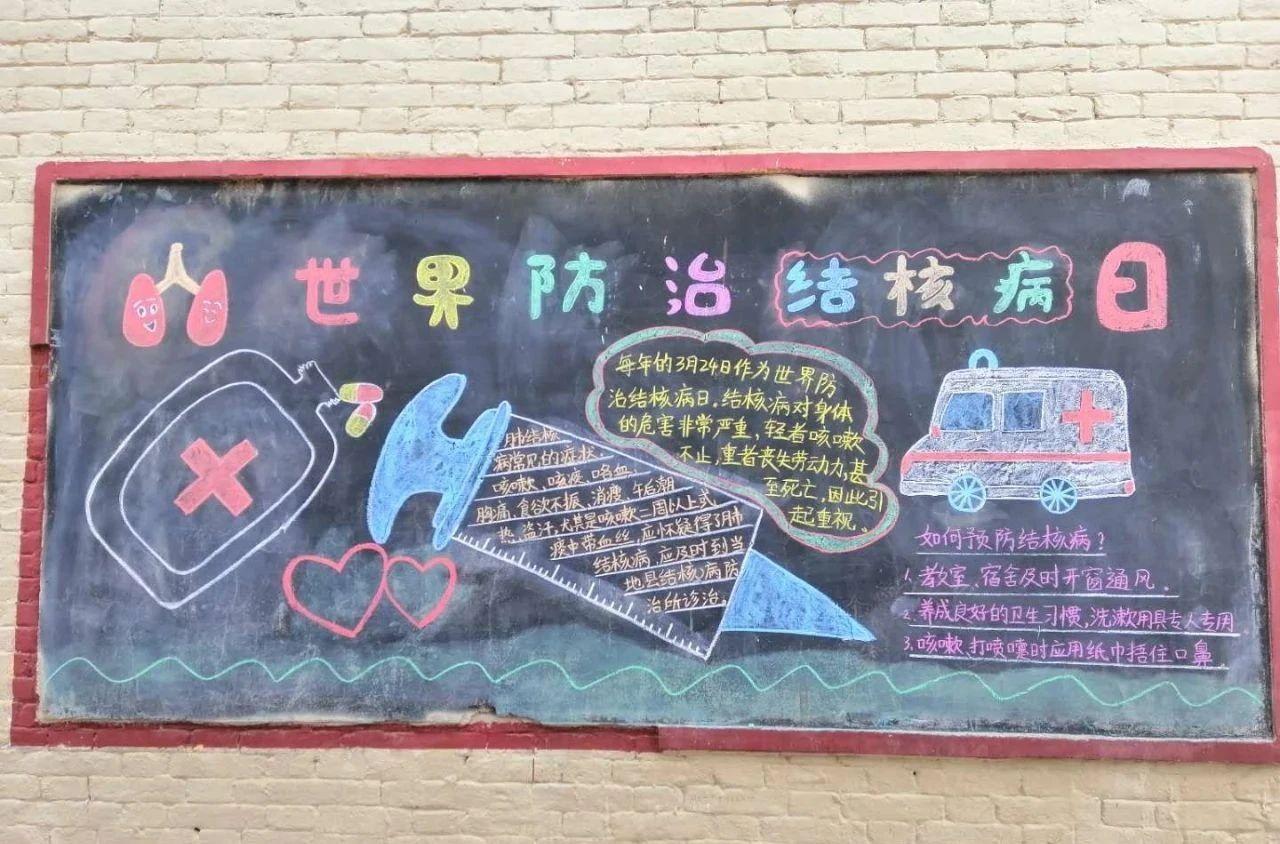 世界防治结核病日
每年的3月24日作为世界防
治结核病日。结核病对身体
的危害非常严重,轻者咳嗽
不止,重者丧失劳动力,甚
至死亡,因此引
起重视。
肺结核
病常见的症状:
咳嗽、咳痰、咯血、
胸痛、食欲不振、消瘦、午后潮
热、盗汗,尤其是咳嗽一周以上或
痰中带血丝,应怀疑得了肺
结核病,应及时到当
地县结核病防
治所诊治。
如何预防结核病?
1、教室、宿舍及时开窗通风。
2、养成良好的卫生习惯,洗漱用具专人专用
3、咳嗽、打喷嚏时应用纸巾捂住口鼻